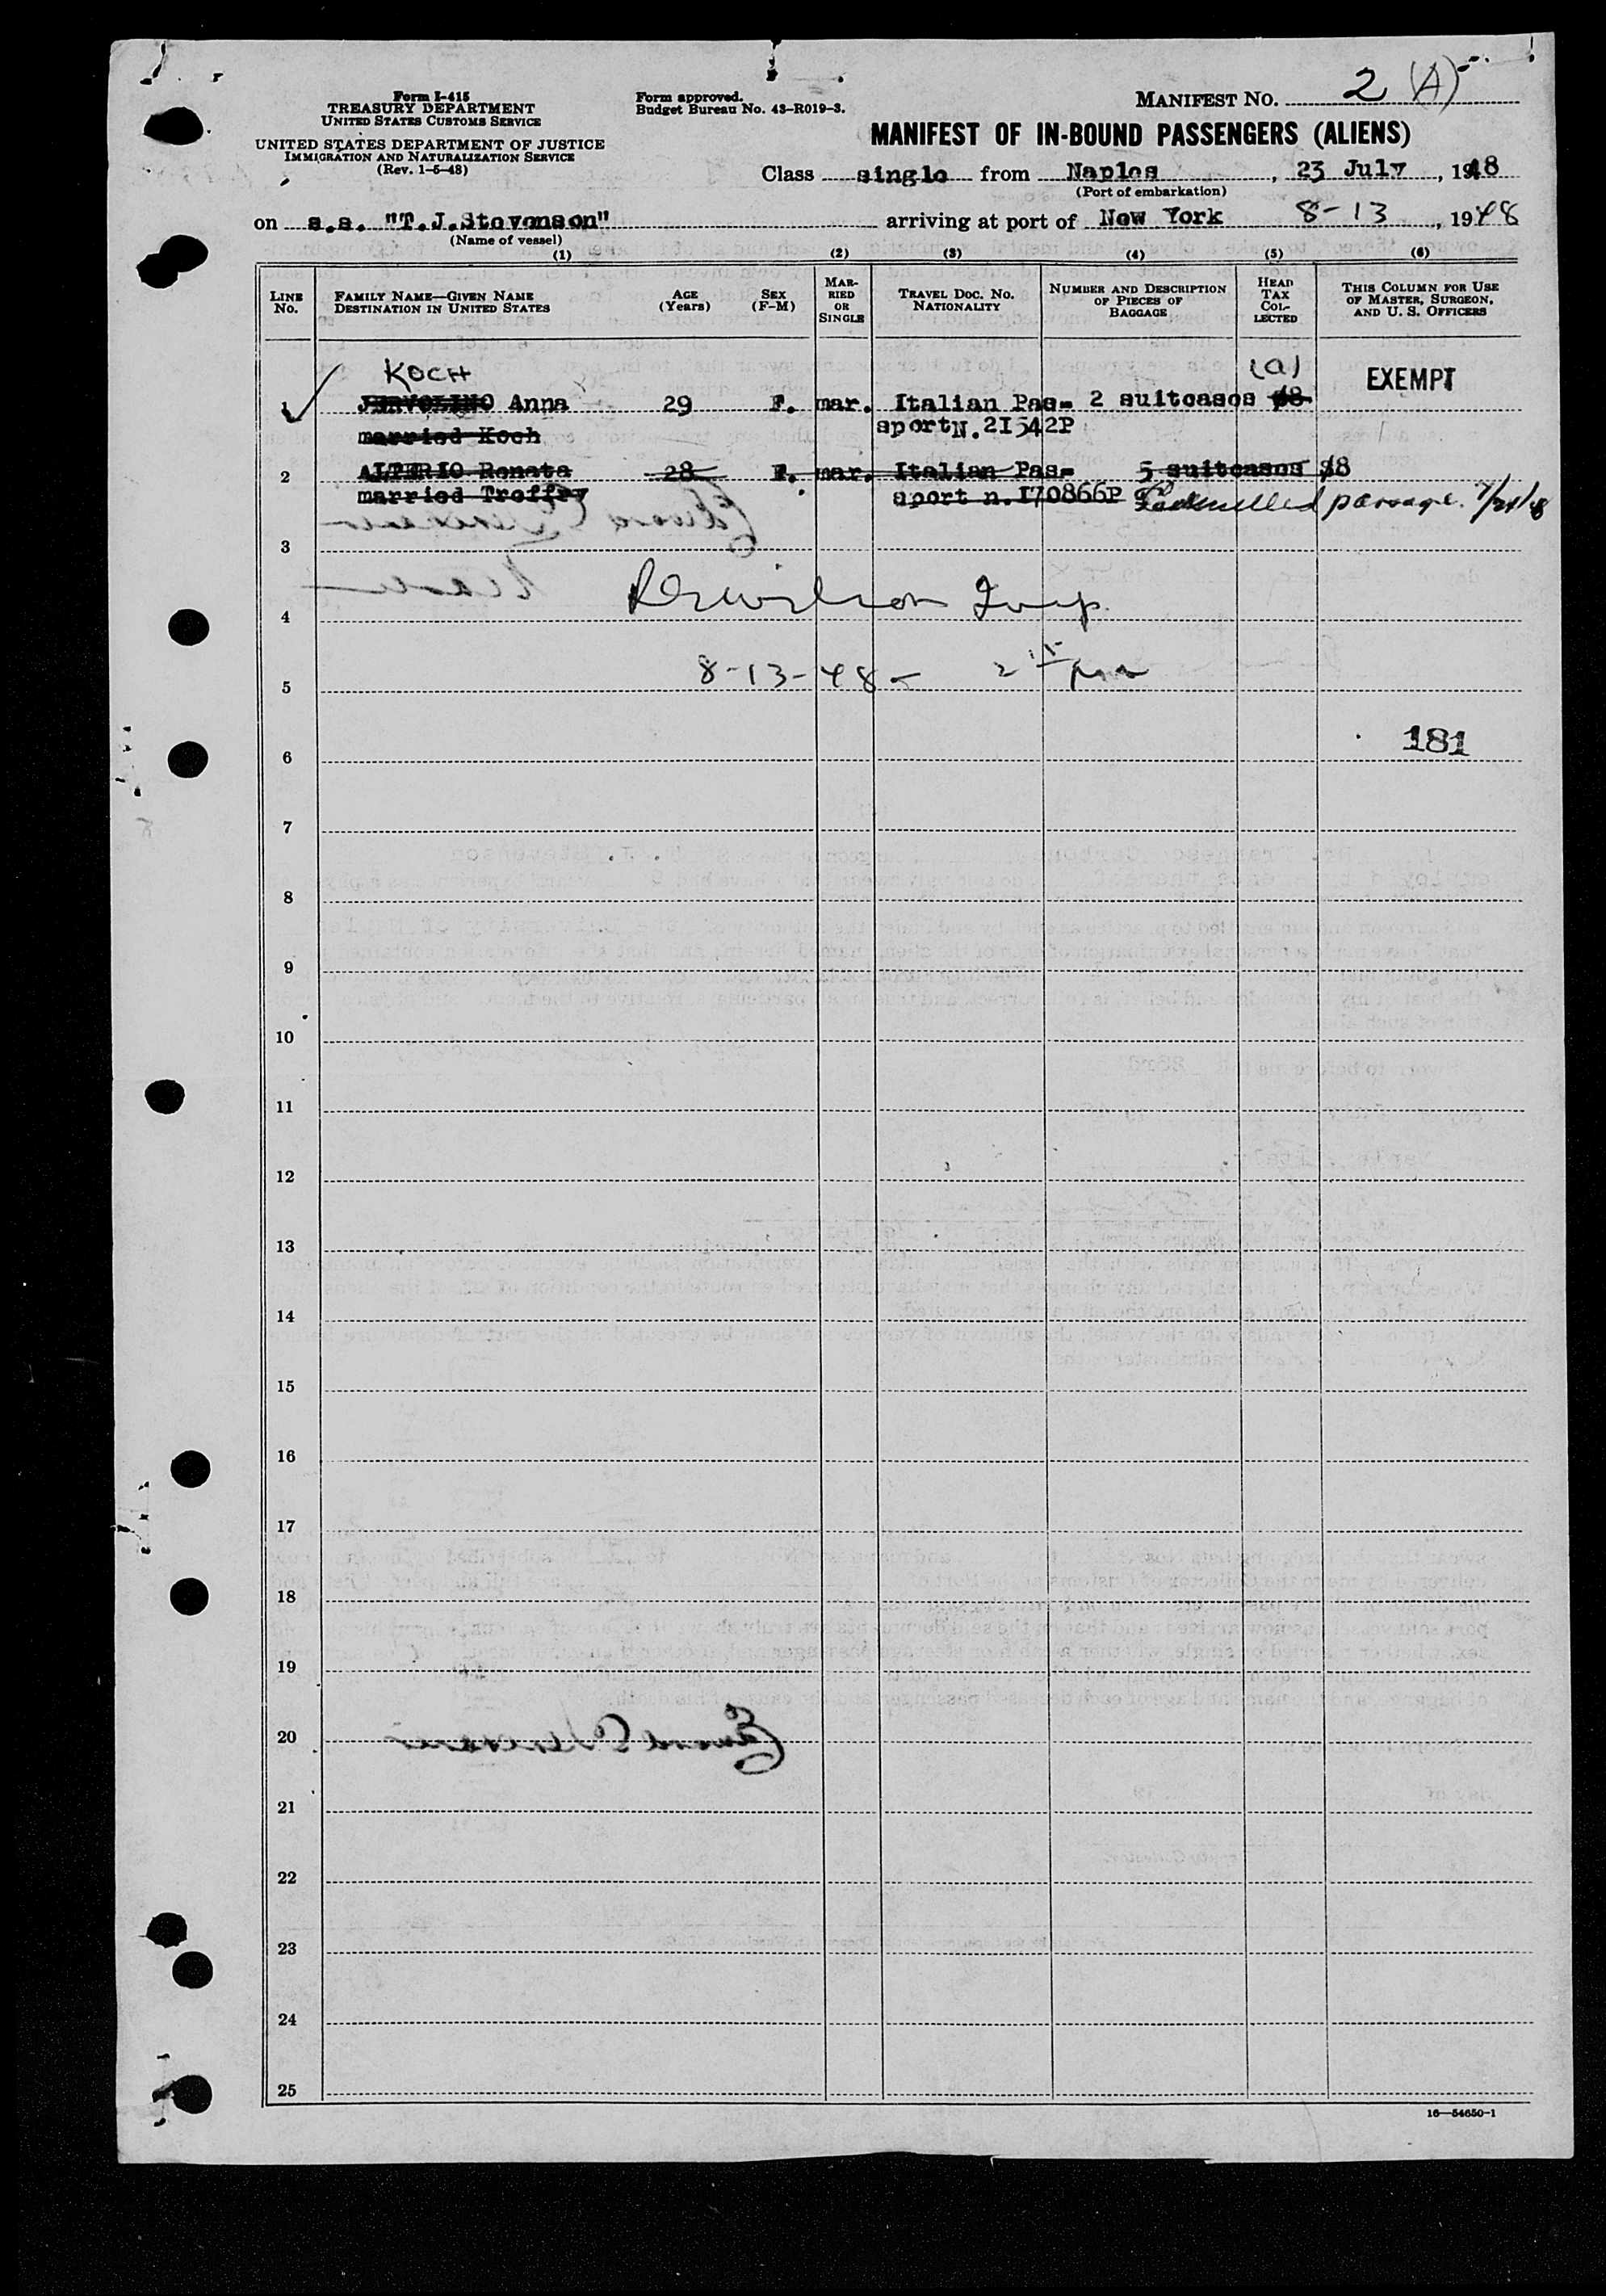 Form I-415
TREASURY DEPARTMENT
UNITED STATES CUSTOMS SERVICE
UNITED STATES DEPARTMENT OF JUSTICE
IMMIGRATION AND NATURALIZATION SERVICE
(Rev. 1-5-48)
Form approved.
Budget Bureau No. 43-R019-3.
MANIFEST NO. 2 (A)
MANIFEST OF IN-BOUND PASSENGERS (ALIENS)
Class single from Naples, 23 July, 1948
(Port of embarkation)
on s.s. "T.J.Stevenson" arriving at port of New York 8-13, 1948
(Name of vessel)
(1) (2) (3) (4) (5) (6)
LINE NO.
FAMILY NAME—GIVEN NAME
DESTINATION IN UNITED STATES
AGE
(Years)
SEX
(F-M)
MAR-
RIED
OR
SINGLE
TRAVEL DOC. NO.
NATIONALITY
NUMBER AND DESCRIPTION
OF PIECES OF
BAGGAGE
HEAD
TAX
COL-
LECTED
THIS COLUMN FOR USE
OF MASTER, SURGEON,
AND U. S. OFFICERS
KOCH (a) EXEMPT
1 JERVOLINO Anna 29 F. mar. Italian Pas- 2 suitcases $8
married Koch sport N. 21542P
2 ALTERIO Renata 28 F. mar. Italian Pas- 5 suitcases $8
married Treffry sport n. 170866P Cancelled passage. 7/21/48
3
4 Insp.
5 8-13-48- 2 pm
181
6
7
8
9
10
11
12
13
14
15
16
17
18
19
20
21
22
23
24
25
16—54650-1